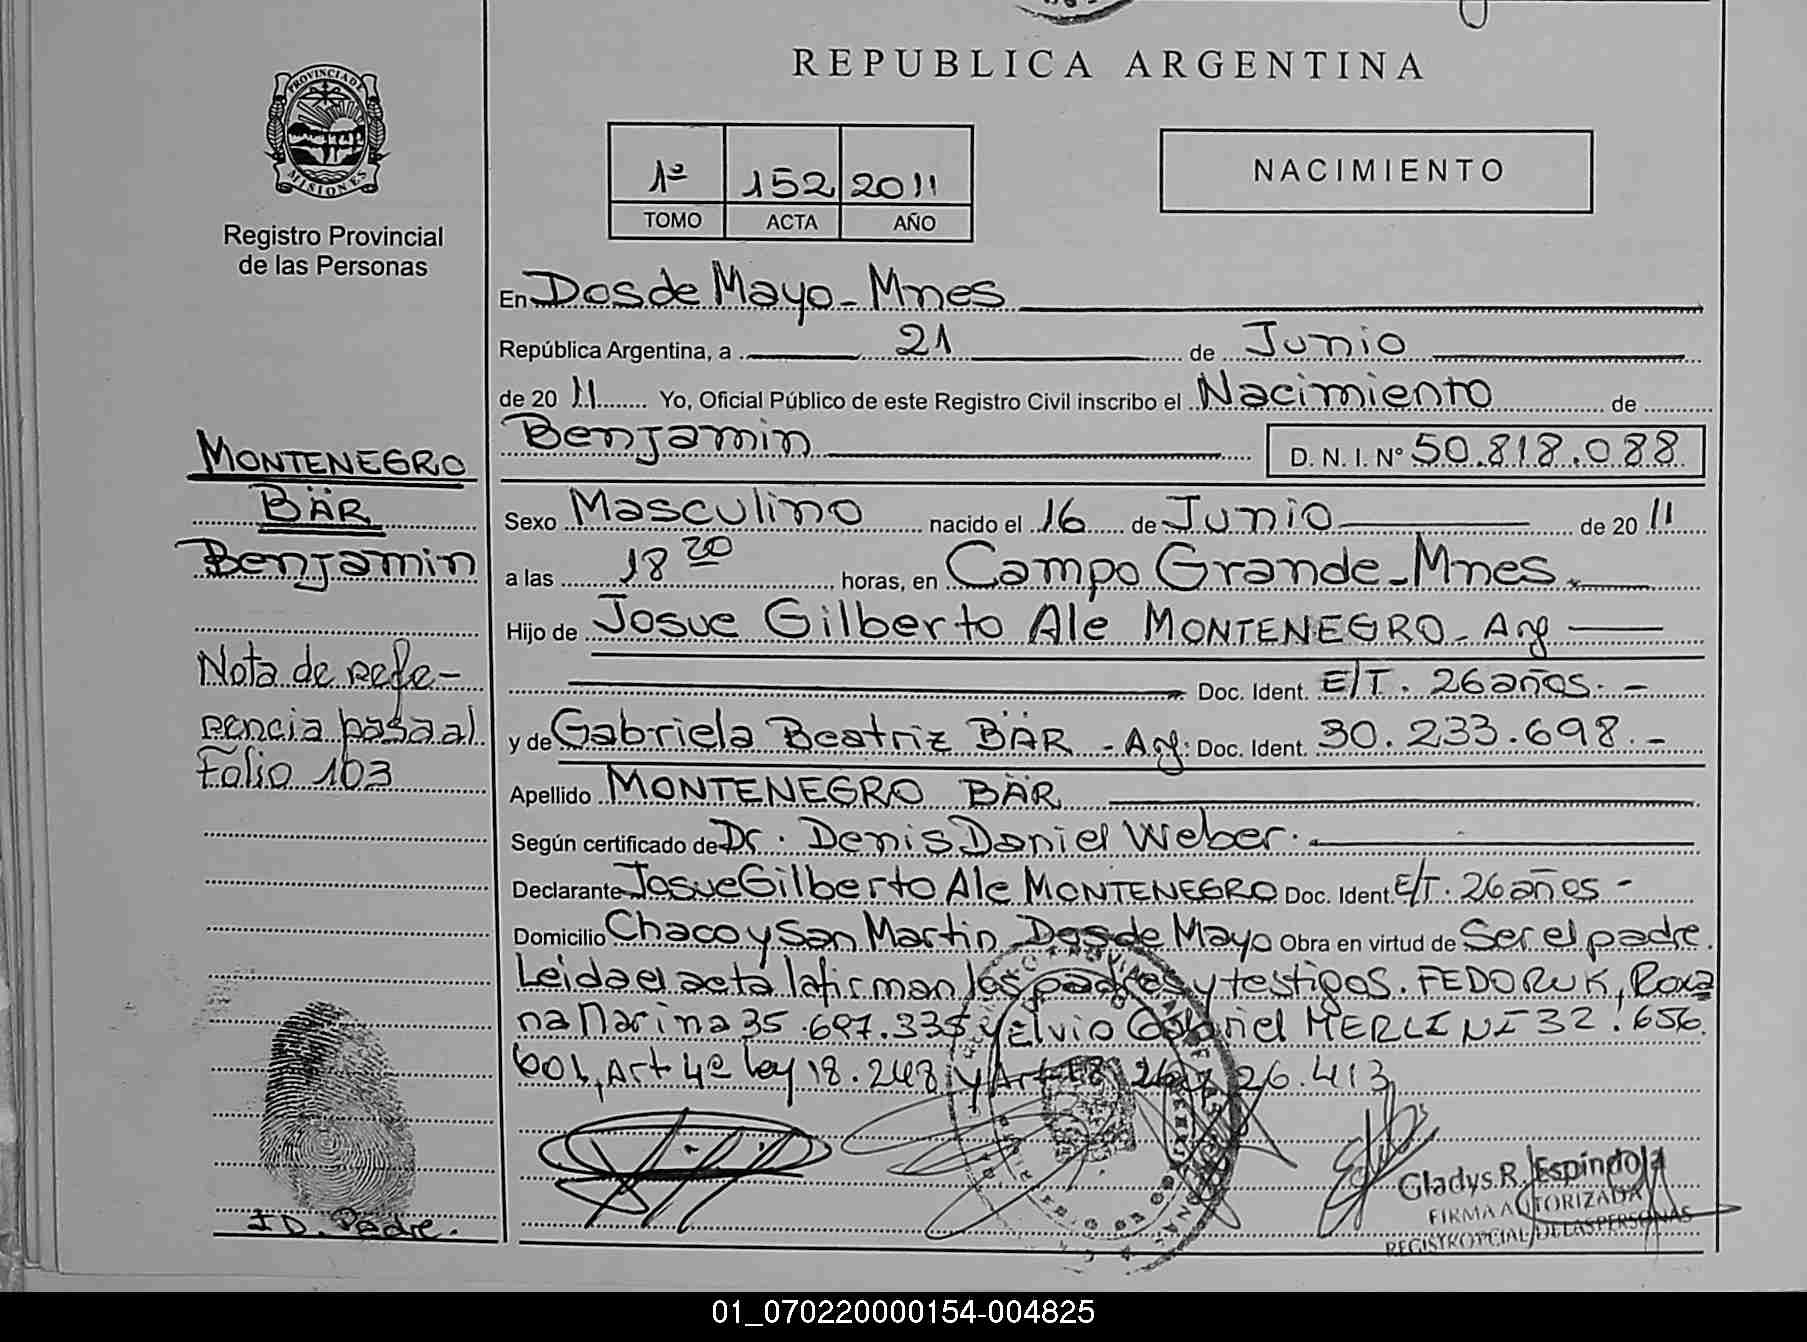 REPUBLICA ARGENTINA
PROVINCIA DE
MISIONES
Registro Provincial
de las Personas
1º 152 2011
TOMO ACTA AÑO
NACIMIENTO
En Dos de Mayo - Mnes
República Argentina, a 21 de Junio
de 2011 Yo, Oficial Público de este Registro Civil inscribo el Nacimiento de
Benjamin D. N. I. Nº 50.818.088
MONTENEGRO
BÄR
Benjamin
Sexo Masculino nacido el 16 de Junio de 2011
a las 18 20 horas, en Campo Grande - Mnes
Hijo de Josue Gilberto Ale MONTENEGRO - Arg
Doc. Ident. E/T. 26 años. -
y de Gabriela Beatriz BÄR - Arg: Doc. Ident. 30.233.698. -
Apellido MONTENEGRO BÄR
Según certificado de Dr. Denis Daniel Weber.
Declarante Josue Gilberto Ale MONTENEGRO Doc. Ident. E/T. 26 años -
Domicilio Chaco y San Martin Dos de Mayo Obra en virtud de Ser el padre.
Leida el acta la firman los padres y testigos. FEDORUK, Roxa
na Marina 35.697.335 y Elvio Gabriel MERLINI 32.656.
601, Art 4º Ley 18.248 y Art 26.413
Nota de refe-
rencia pasa al
Folio 103
I D. Padre.
Gladys R. Espindola
FIRMA AUTORIZADA
REGISTRO PCIAL DE LAS PERSONAS
01_070220000154-004825